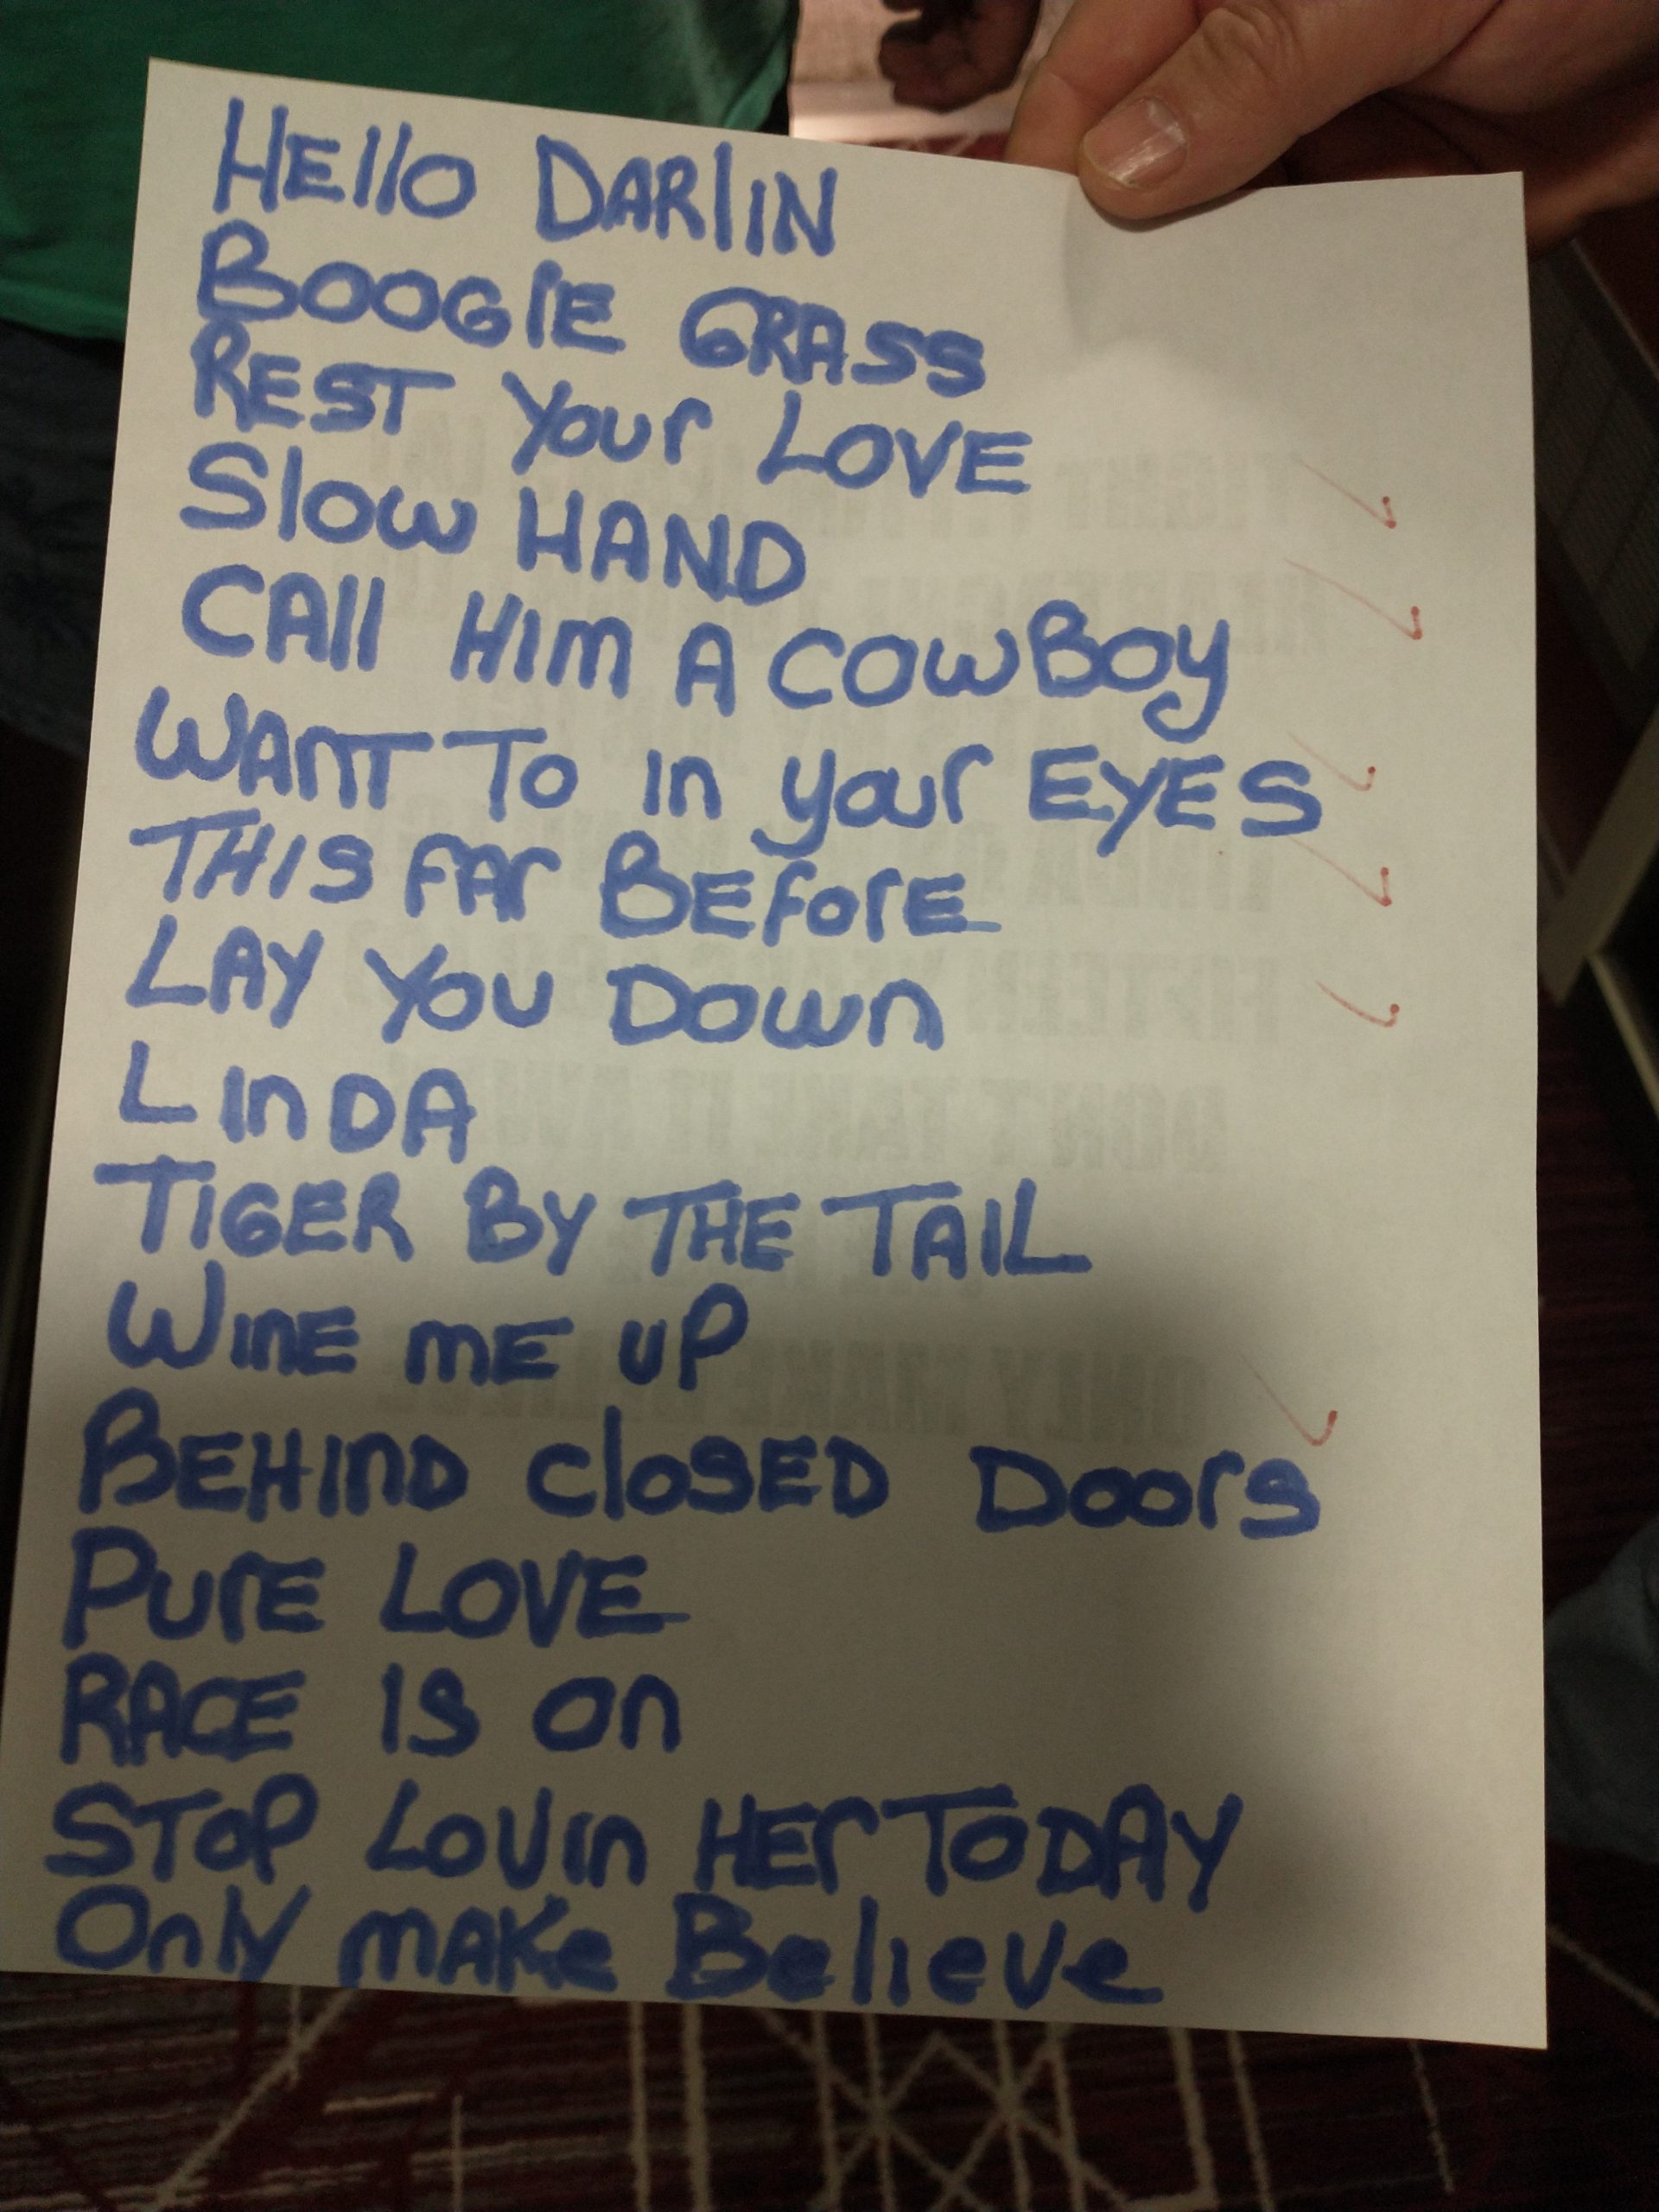 HEllO DARlIN
BOOGIE GRASS
REST your LOVE
Slow HAND
CAll HIM A COWBOY
WANT TO in your EYES
THIS FAr BEforE
LAY YOU DOWn
LInDA
TIGER BY THE TAIL
WINE mE UP
BEHIND ClOSED Doors
PurE LOVE
RACE IS on
STOP LOVin HEr TODAY
Only mAKe Believe